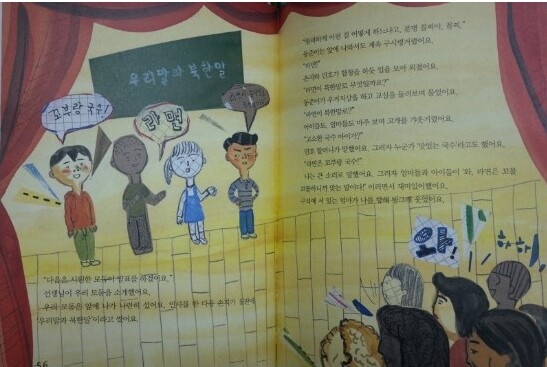 우리말과 북한말
꼬부랑 국수!
라면
"다음은 시원한 모둠이 발표를 하겠어요."
선생님이 우리 모둠을 소개했어요.
우리 모둠은 앞에 나가 나란히 섰어요. 인사를 한 다음 은지가 칠판에
'우리말과 북한말'이라고 썼어요.
56
어떻게 하느냐고,
동준이는 앞에 나와서도 계속 구시렁거렸어요.
"라면!"
은지와 민호가 합창을 하듯 입을 모아 외쳤어요.
"라면이 북한말로 무엇일까요?"
동준이가 우거지상을 하고 교실을 둘러보며 물었어요.
"라면이 북한말로?"
아이들도, 엄마들도 마주 보며 고개를 갸웃거렸어요.
"고소한 국수 아니야?"
민호 할머니가 말했어요. 그러자 누군가 '맛있는 국수'라고도 했어요.
"라면은 꼬부랑 국수!"
나는 큰 소리로 말했어요. 그러자 엄마들과 아이들이 '와, 라면은 꼬불
꼬불하니까 맞는 말이다!' 이러면서 재미있어했어요.
구석에 서 있는 엄마가 나를 향해 빙그레 웃었어요.
와!
하하